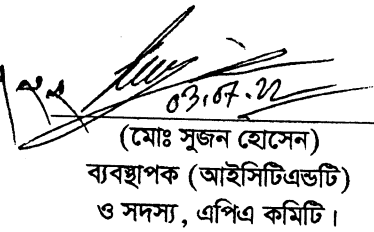 ০৩.০৭.২২
(মোঃ সুজন হোসেন)
ব্যবস্থাপক (আইসিটিএন্ডটি)
ও সদস্য, এপিএ কমিটি।